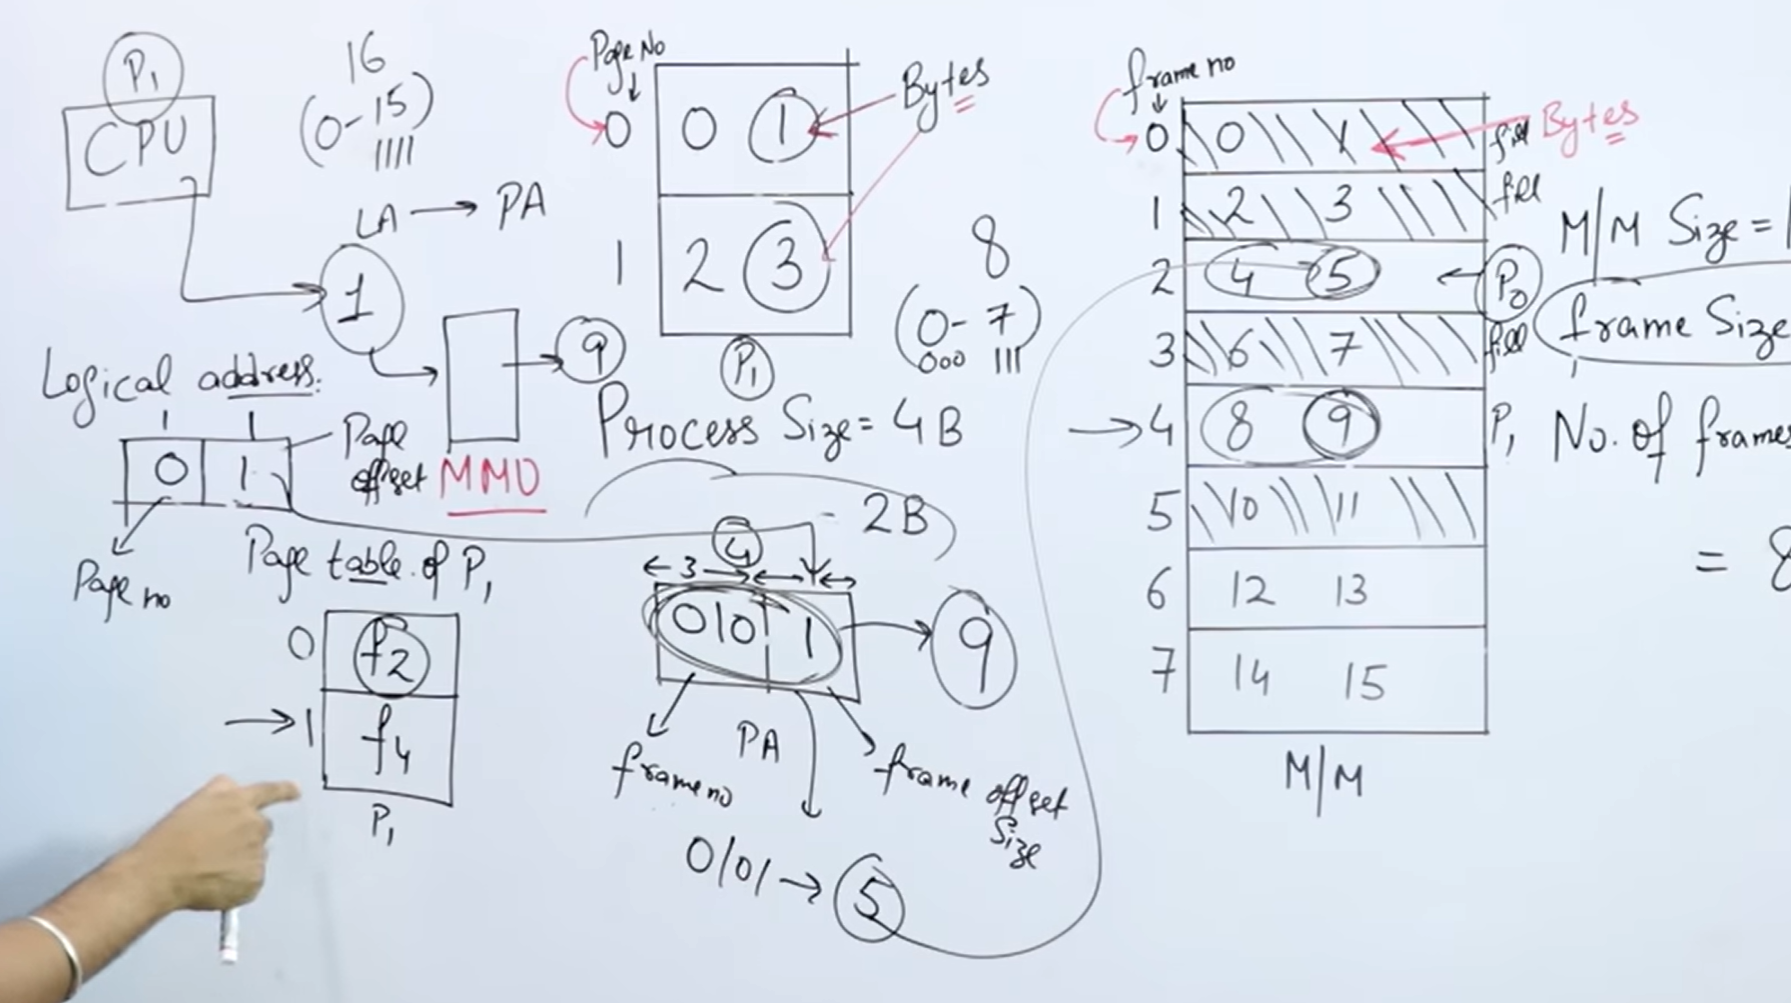 P1
CPU
16
(0-15)
1111
LA → PA
1
9
MMU
Logical address.
1 1
0 1
Page offset
Page no
Page table of P1
0 f2
→ 1 f4
P1
Page No
0 0 1
1 2 3
Bytes
P1
8
(0-7)
000 111
Process Size = 4B
2B
4
← 3 →
010 1
→ 9
frame no
PA
frame offset
Size
0101 → 5
frame no
0 0 1 fill
Bytes
1 2 3 fill
2 4 5 ← P0
3 6 7 fill
→ 4 8 9 P1
5 10 11
6 12 13
7 14 15
M/M
M/M Size =
frame Size
No. of frames
= 8